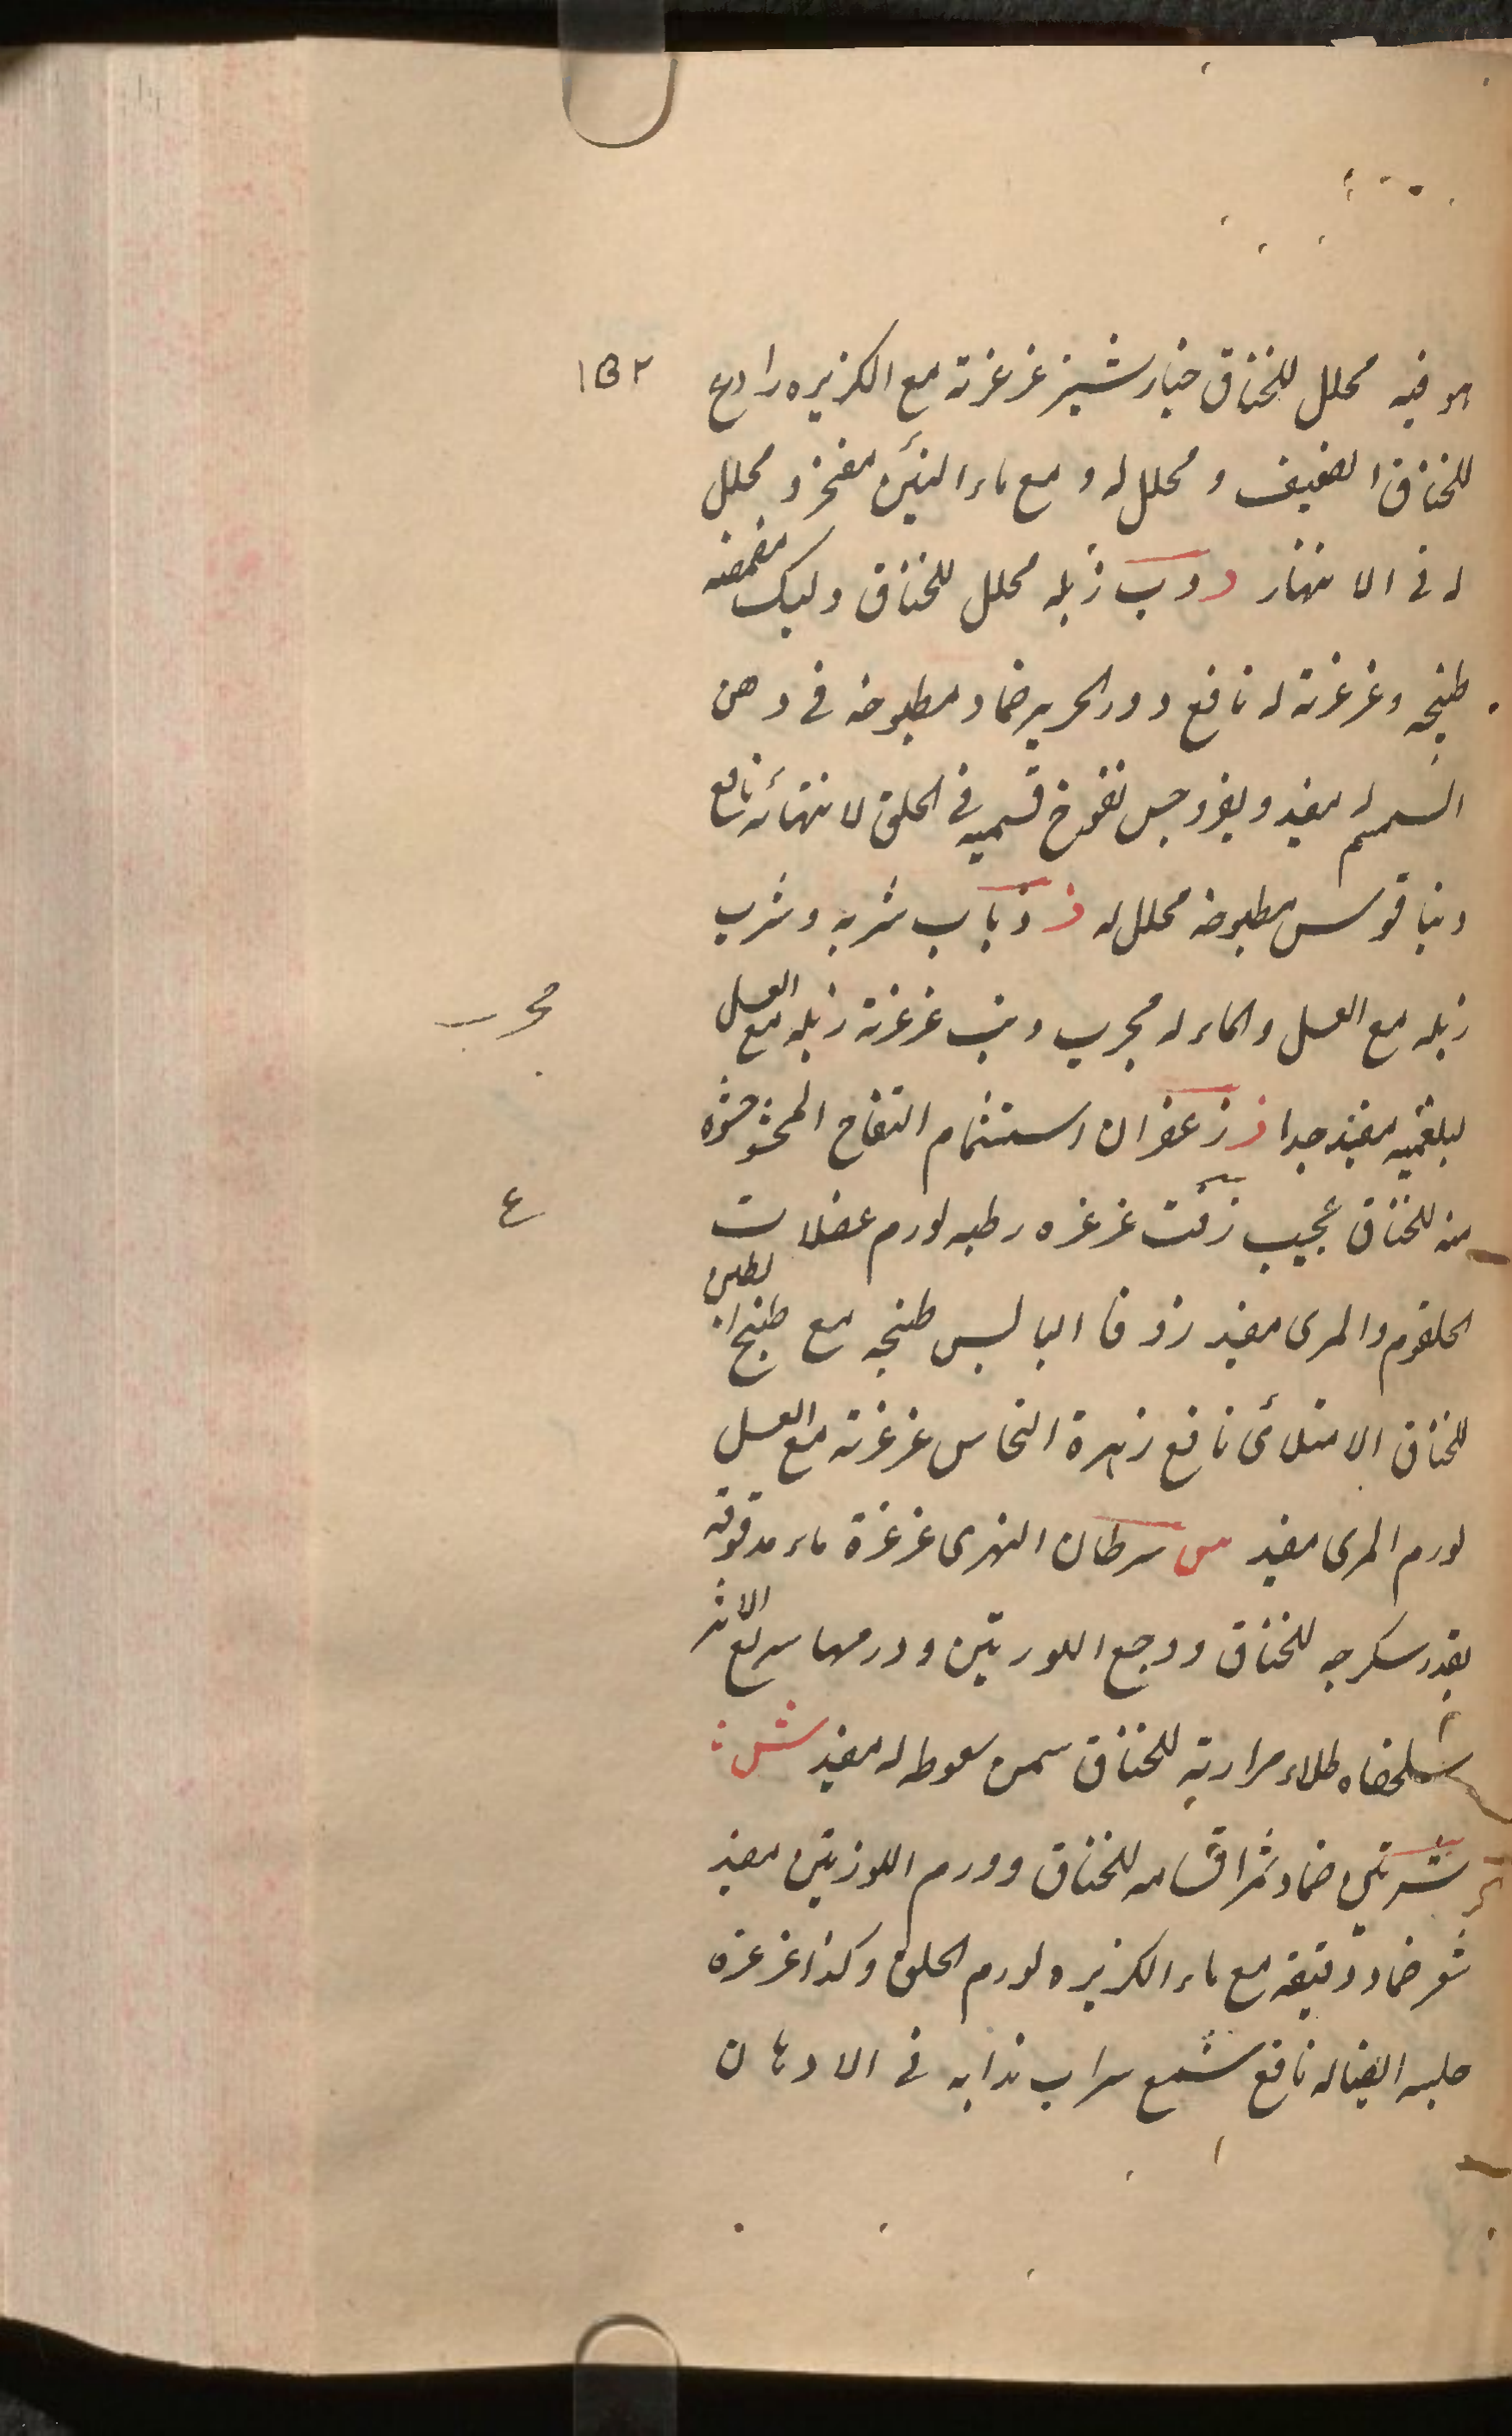 ١٥٢
هو فيه محلل للخناق خيارشنبز غرغرته مع الكزبره رادع
للخناق الضعيف و محلل له و مع ماء التين مفجر و محلل
له فى الانتهاء د دب زبله محلل للخناق و ليك مضمضه
طبخه و غرغرته له نافع دود الحرير ضماد مطبوخه فى دهن
السمسم له مفيد و نفوخ فى الحلق لانتهائه نافع
مطبوخه محلل له ذ ذباب شربه و شرب
زبله مع العسل و الماء له مجرب و ذئب غرغرته زبله مع العسل
مجرب
لبلغميه مفيد جدا ز زعفران استشمام التفاح المحشو حشوه
منه للخناق عجيب زفت غرغره رطبه لورم عضلات
ع
الحلقوم و المرى مفيد زوفا اليابس طبخه مع طبخ التين
للخناق الامتلائى نافع زهرة النحاس غرغرته مع العسل
لورم المرى مفيد س سرطان النهرى غرغرة ماء مدقوقه
بقدر سكرجه للخناق و وجع اللوزتين و ورمها سريع الاثر
سلحفاه طلاء مرارته للخناق سمن سعوطه له مفيد ش
ضماد للخناق و ورم اللوزتين مفيد
شعير ضماد دقيقه مع ماء الكزبره لورم الحلق و كذا غرغره
حلبه ايضا له نافع شمع شراب مذابه فى الادهان